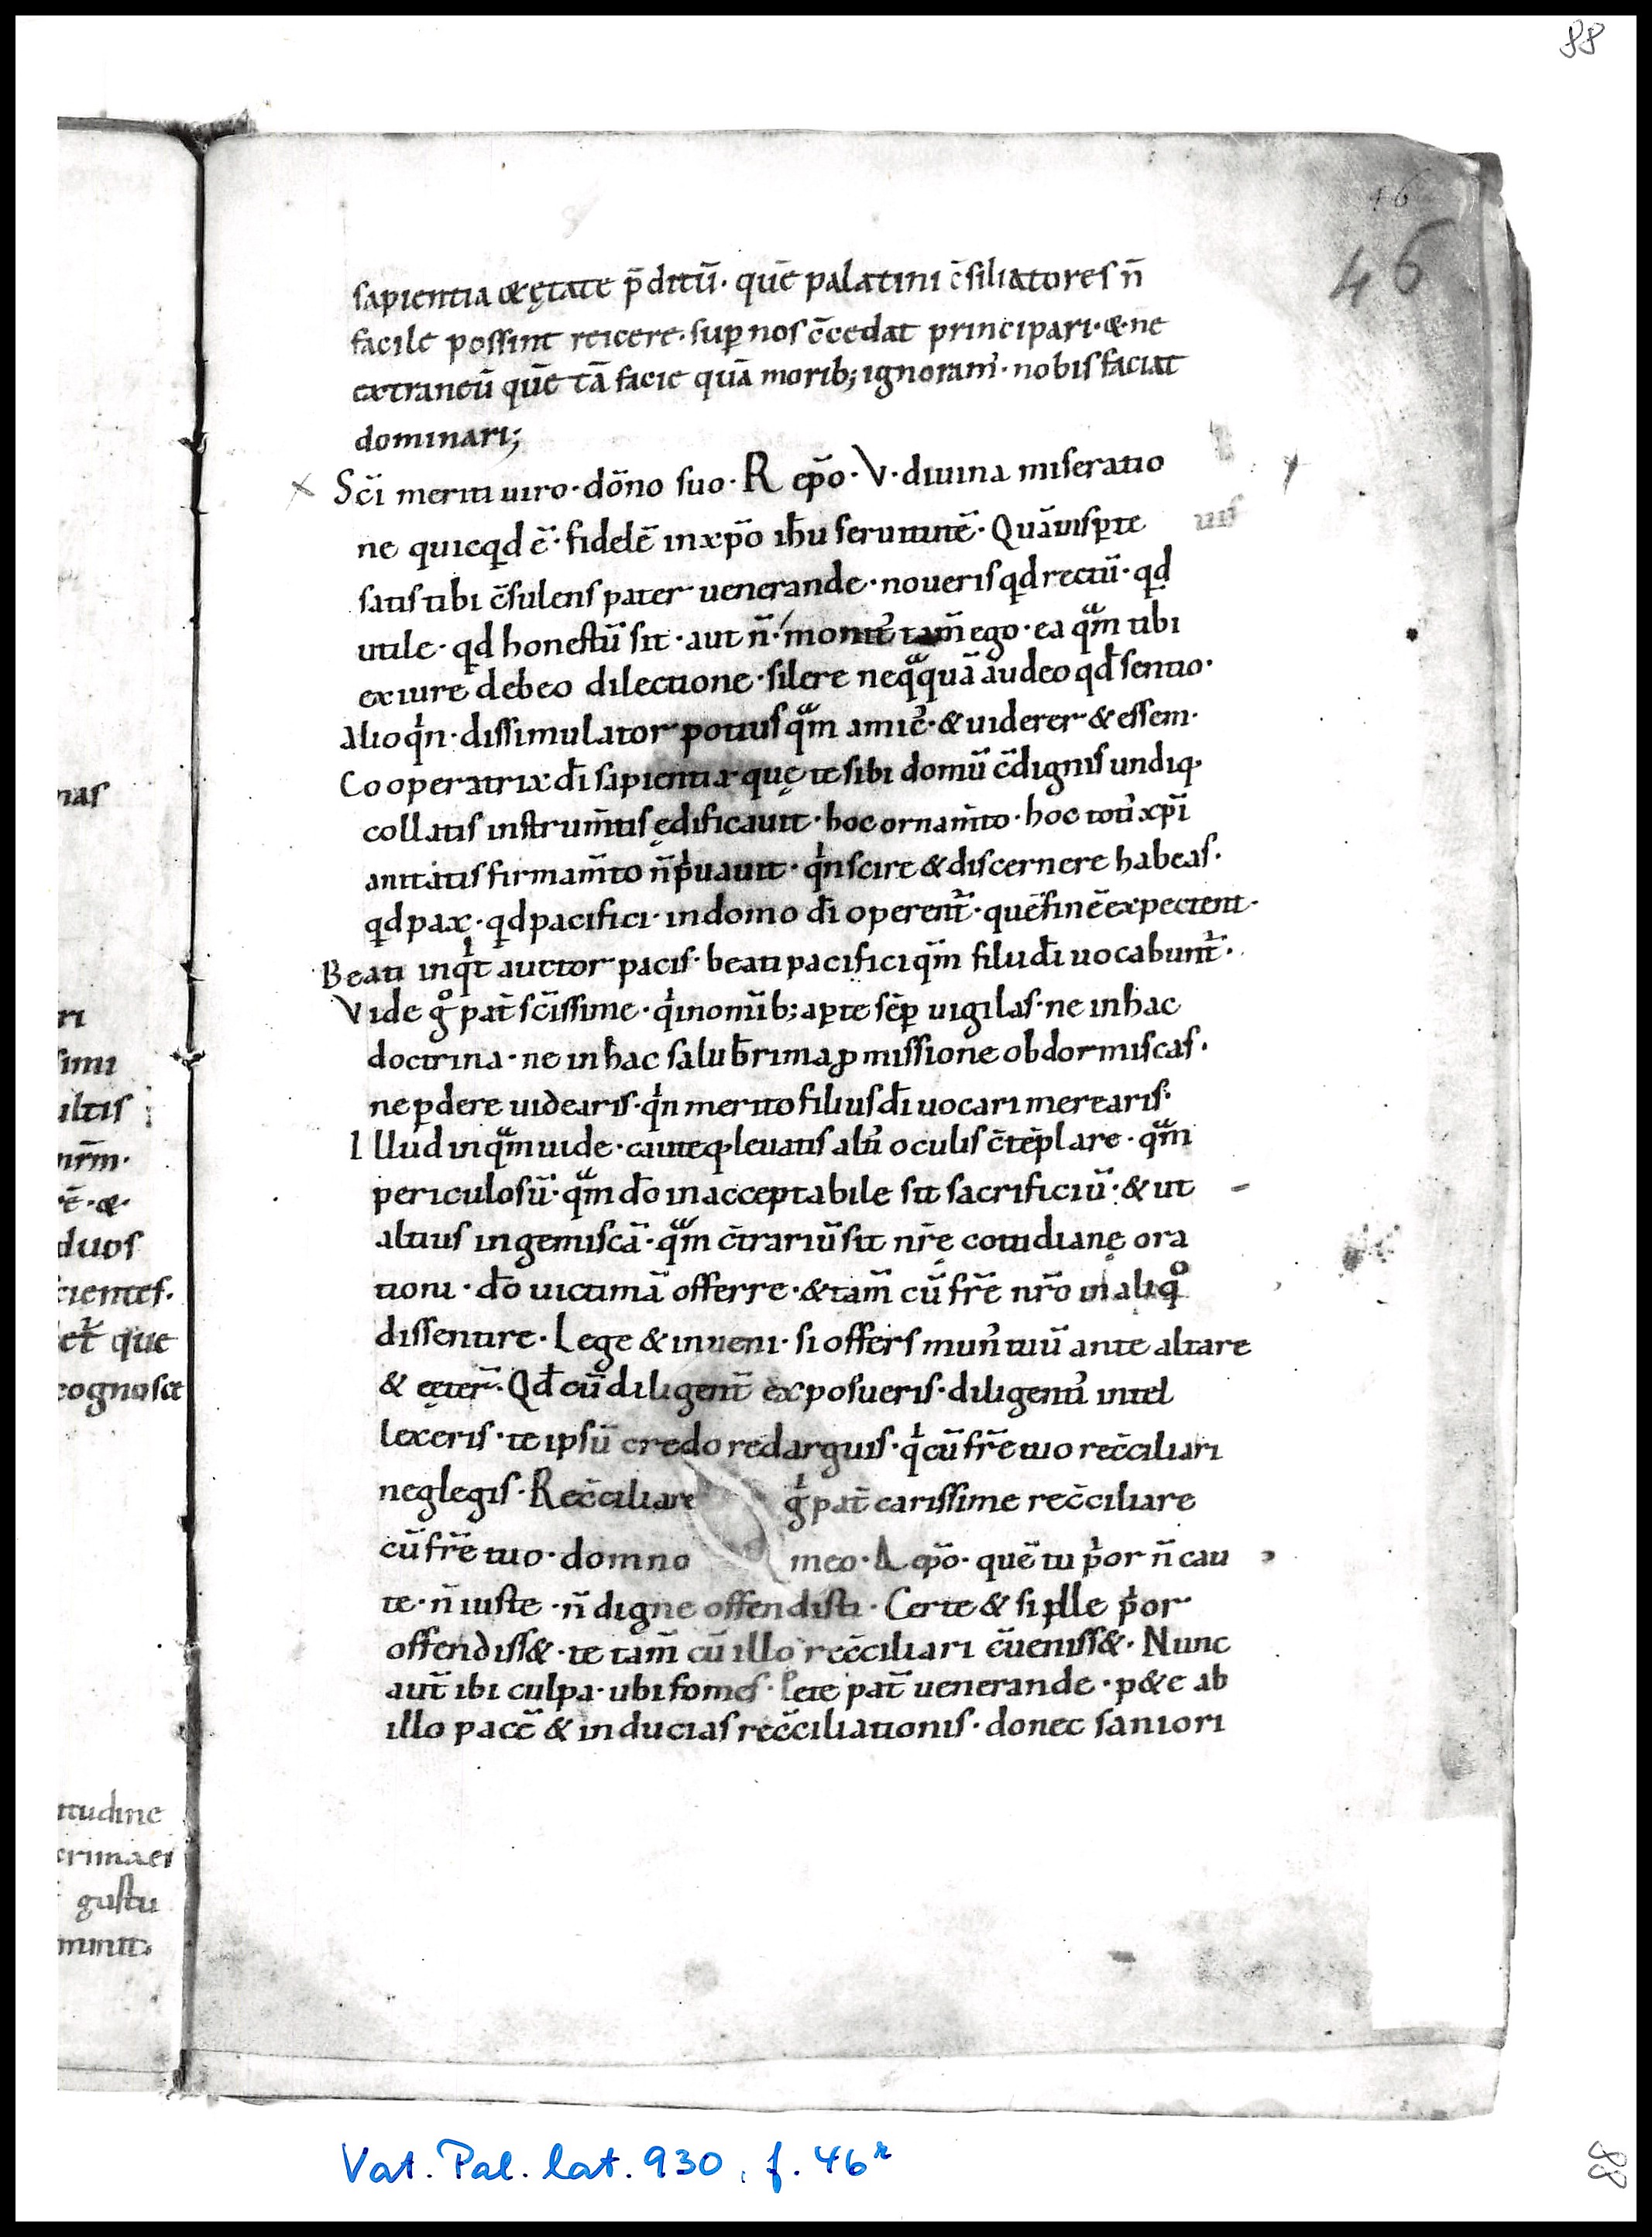 88
46
46
sapientia & ętate p̄ditū· quē palatini c̄siliatores n̄
facile possint reicere· suꝑ nos c̄cedat principari· & ne
extraneū quē tā facie quā morib; ignoram᾽· nobis faciat
dominari;
Sc̄i meriti uiro· dōno suo· R ep̄o· V· diuina miseratio
ne quicqd ē· fidelē in xp̄o ih̄u seruitutē· Quāuis ꝑte
satis tibi c̄sulens pater uenerande· noueris qd rectū· qd
utile· qd honestū sit· aut n̄· monit᾽ tam̄ ego· ea qͣm tibi
ex iure debeo dilectione· silere neqͣquā audeo qd̄ sentio·
Alioqⁱn· dissimulator potius qͣm amic᾽· & uiderer & essem·
Cooperatrix dī sapientia quę te sibi domū c̄dignis undiq·
collatis instrum̄tis ędificauit· hoc ornam̄to· hoc toti᾽ xp̄i
anitatis firmam̄to n̄ pⁱuauit· qⁱn scire & discernere habeas·
qd pax· qd pacifici· in domo dī operent᷑· quē finē expectent·
Beati inqⁱt auctor pacis· beati pacifici qm̄ filii dī uocabunt᷑·
Vide gͦ pat̄ sc̄issime· qⁱ in omīb; aꝑte sēꝑ uigilas· ne in hac
doctrina· ne in hac salub̄rima ꝓmissione obdormiscas·
ne ꝑdere uidearis· qⁱn merito filius dī uocari merearis·
Illud inqͣm uide· cauteq· leuatis alti᾽ oculis c̄tēplare· qͣm
periculosū· qͣm dō inacceptabile sit sacrificiū· & ut
altius ingemiscā· qͣm c̄trariū sit nr̄ę cotidianę ora
tioni· dō uictimā offerre· & tam̄ cū fr̄e nr̄o in aliqͦ
dissentire· Lege & inueni· si offers mun᾽ tuū ante altare
& cęter̄· Qd̄ cū diligent̄ exposueris· diligenti᾽ intel
lexeris· te ipsū credo redarguis· qⁱ cū fr̄e tuo rec̄ciliari
neglegis· Rec̄ciliare gⁱ pat̄ carissime rec̄ciliare
cū fr̄e tuo· domno meo· A ep̄o· quē tu pⁱor n̄ cau
te· n̄ iuste· n̄ digne offendisti· Certe & si ille pⁱor
offendiss&· te tam̄ cū illo rec̄ciliari c̄ueniss&· Nunc
aut̄ ibi culpa· ubi fomes· Pete pat̄ uenerande· p&e ab
illo pacē & inducias rec̄ciliationis· donec saniori
nas
ri
simi
ultis
nr̄m·
duos
cientes·
et᷑ que
cognosce
itudine
crimaei
gustu
minit·
Vat. Pal. lat. 930, f. 46r
88